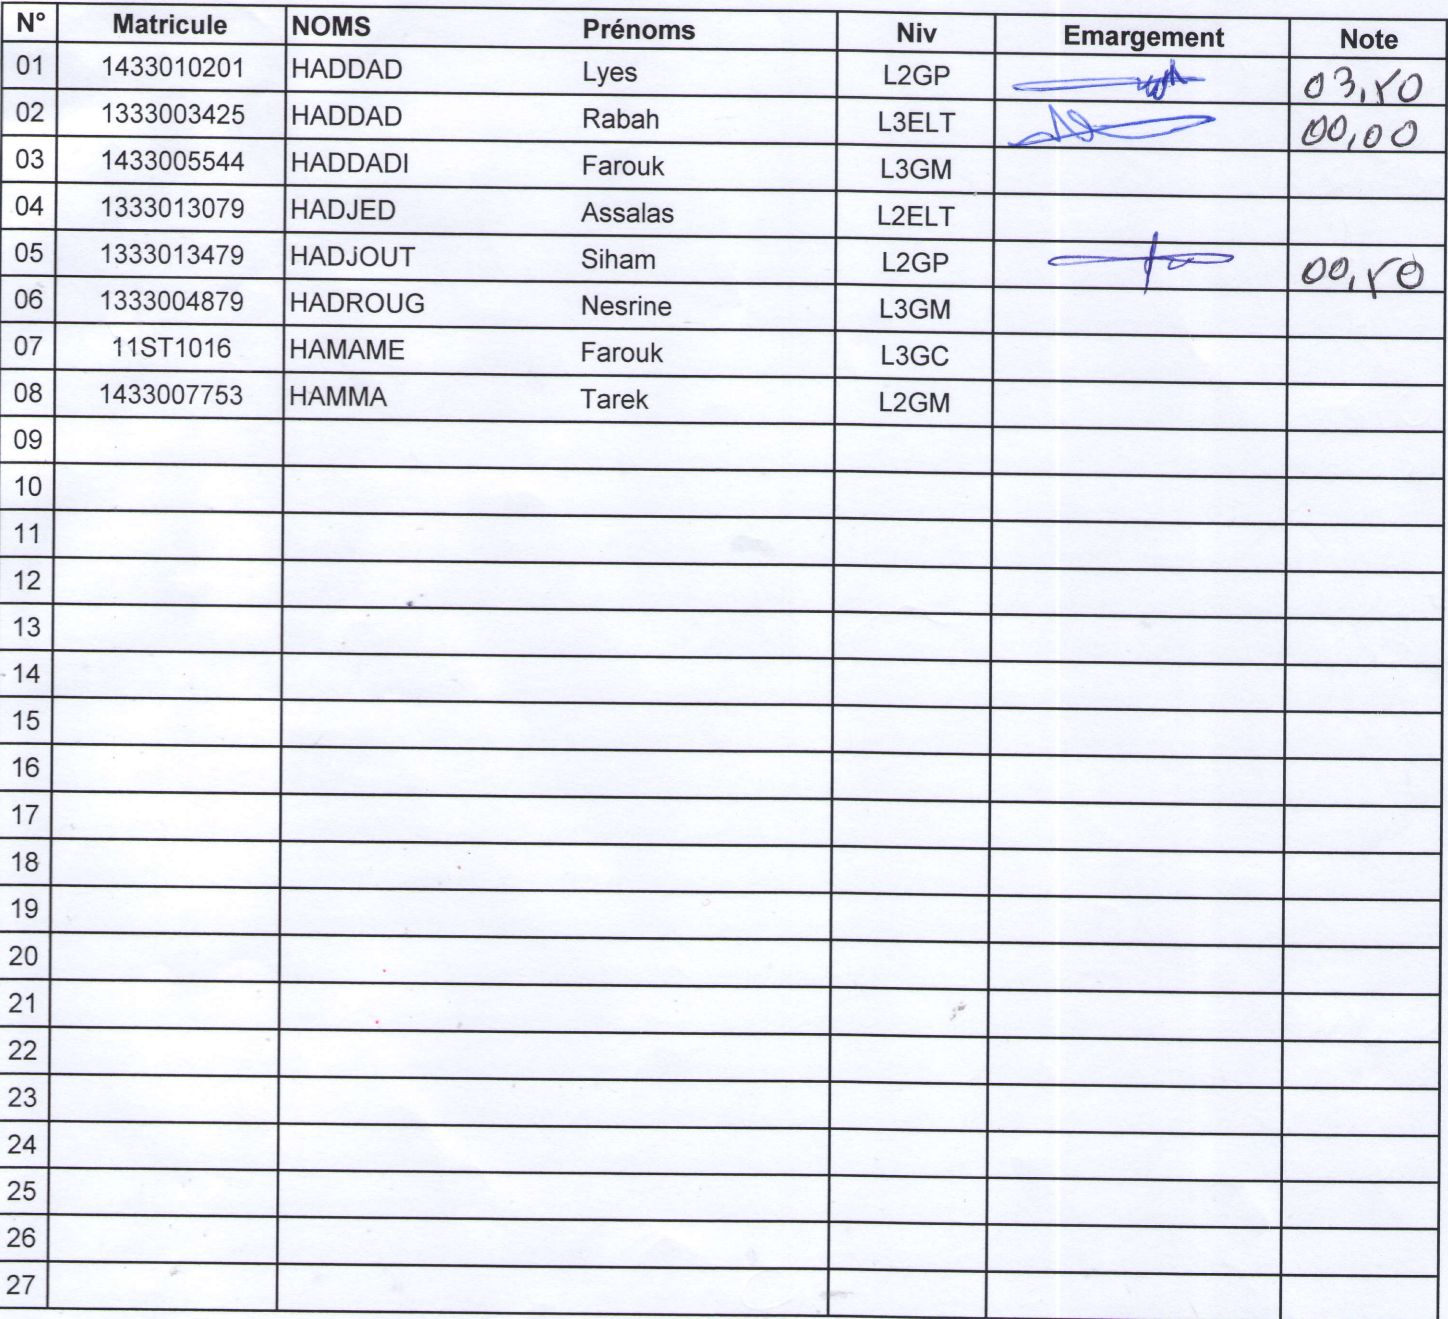 N° Matricule NOMS Prénoms Niv Emargement Note
01 1433010201 HADDAD Lyes L2GP
02 1333003425 HADDAD Rabah L3ELT 00,00
03 1433005544 HADDADI Farouk L3GM
04 1333013079 HADJED Assalas L2ELT
05 1333013479 HADJiOUT Siham L2GP
06 1333004879 HADROUG Nesrine L3GM
07 11ST1016 HAMAME Farouk L3GC
08 1433007753 HAMMA Tarek L2GM
09
10
11
12
13
14
15
16
17
18
19
20
21
22
23
24
25
26
27